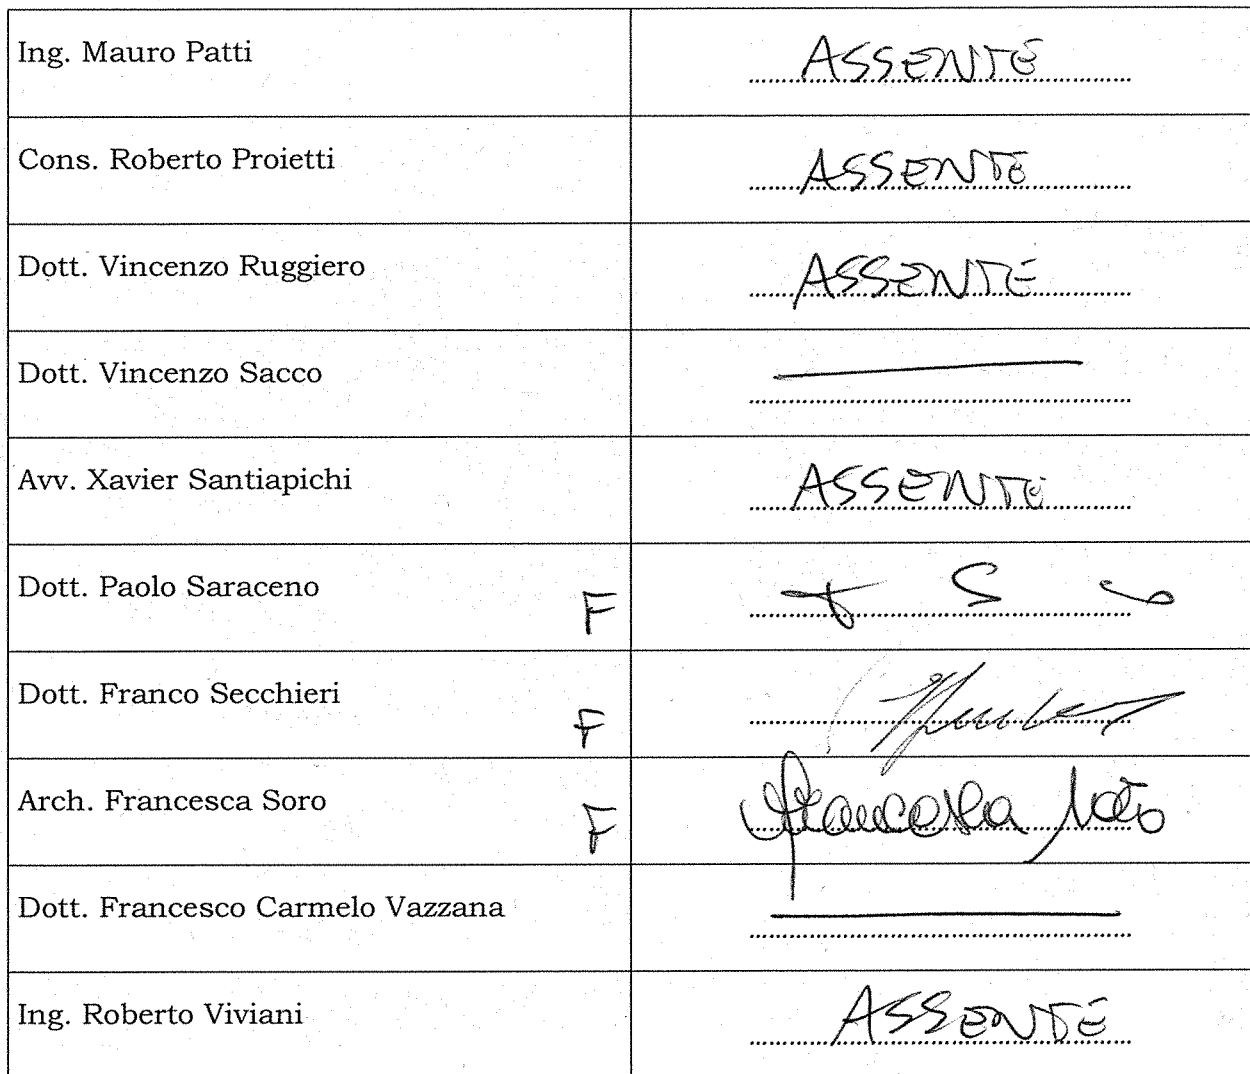 Ing. Mauro Patti ASSENTE
Cons. Roberto Proietti ASSENTE
Dott. Vincenzo Ruggiero ASSENTE
Dott. Vincenzo Sacco
Avv. Xavier Santiapichi ASSENTE
Dott. Paolo Saraceno F
Dott. Franco Secchieri F
Arch. Francesca Soro F Francesca Soro
Dott. Francesco Carmelo Vazzana
Ing. Roberto Viviani ASSENTE